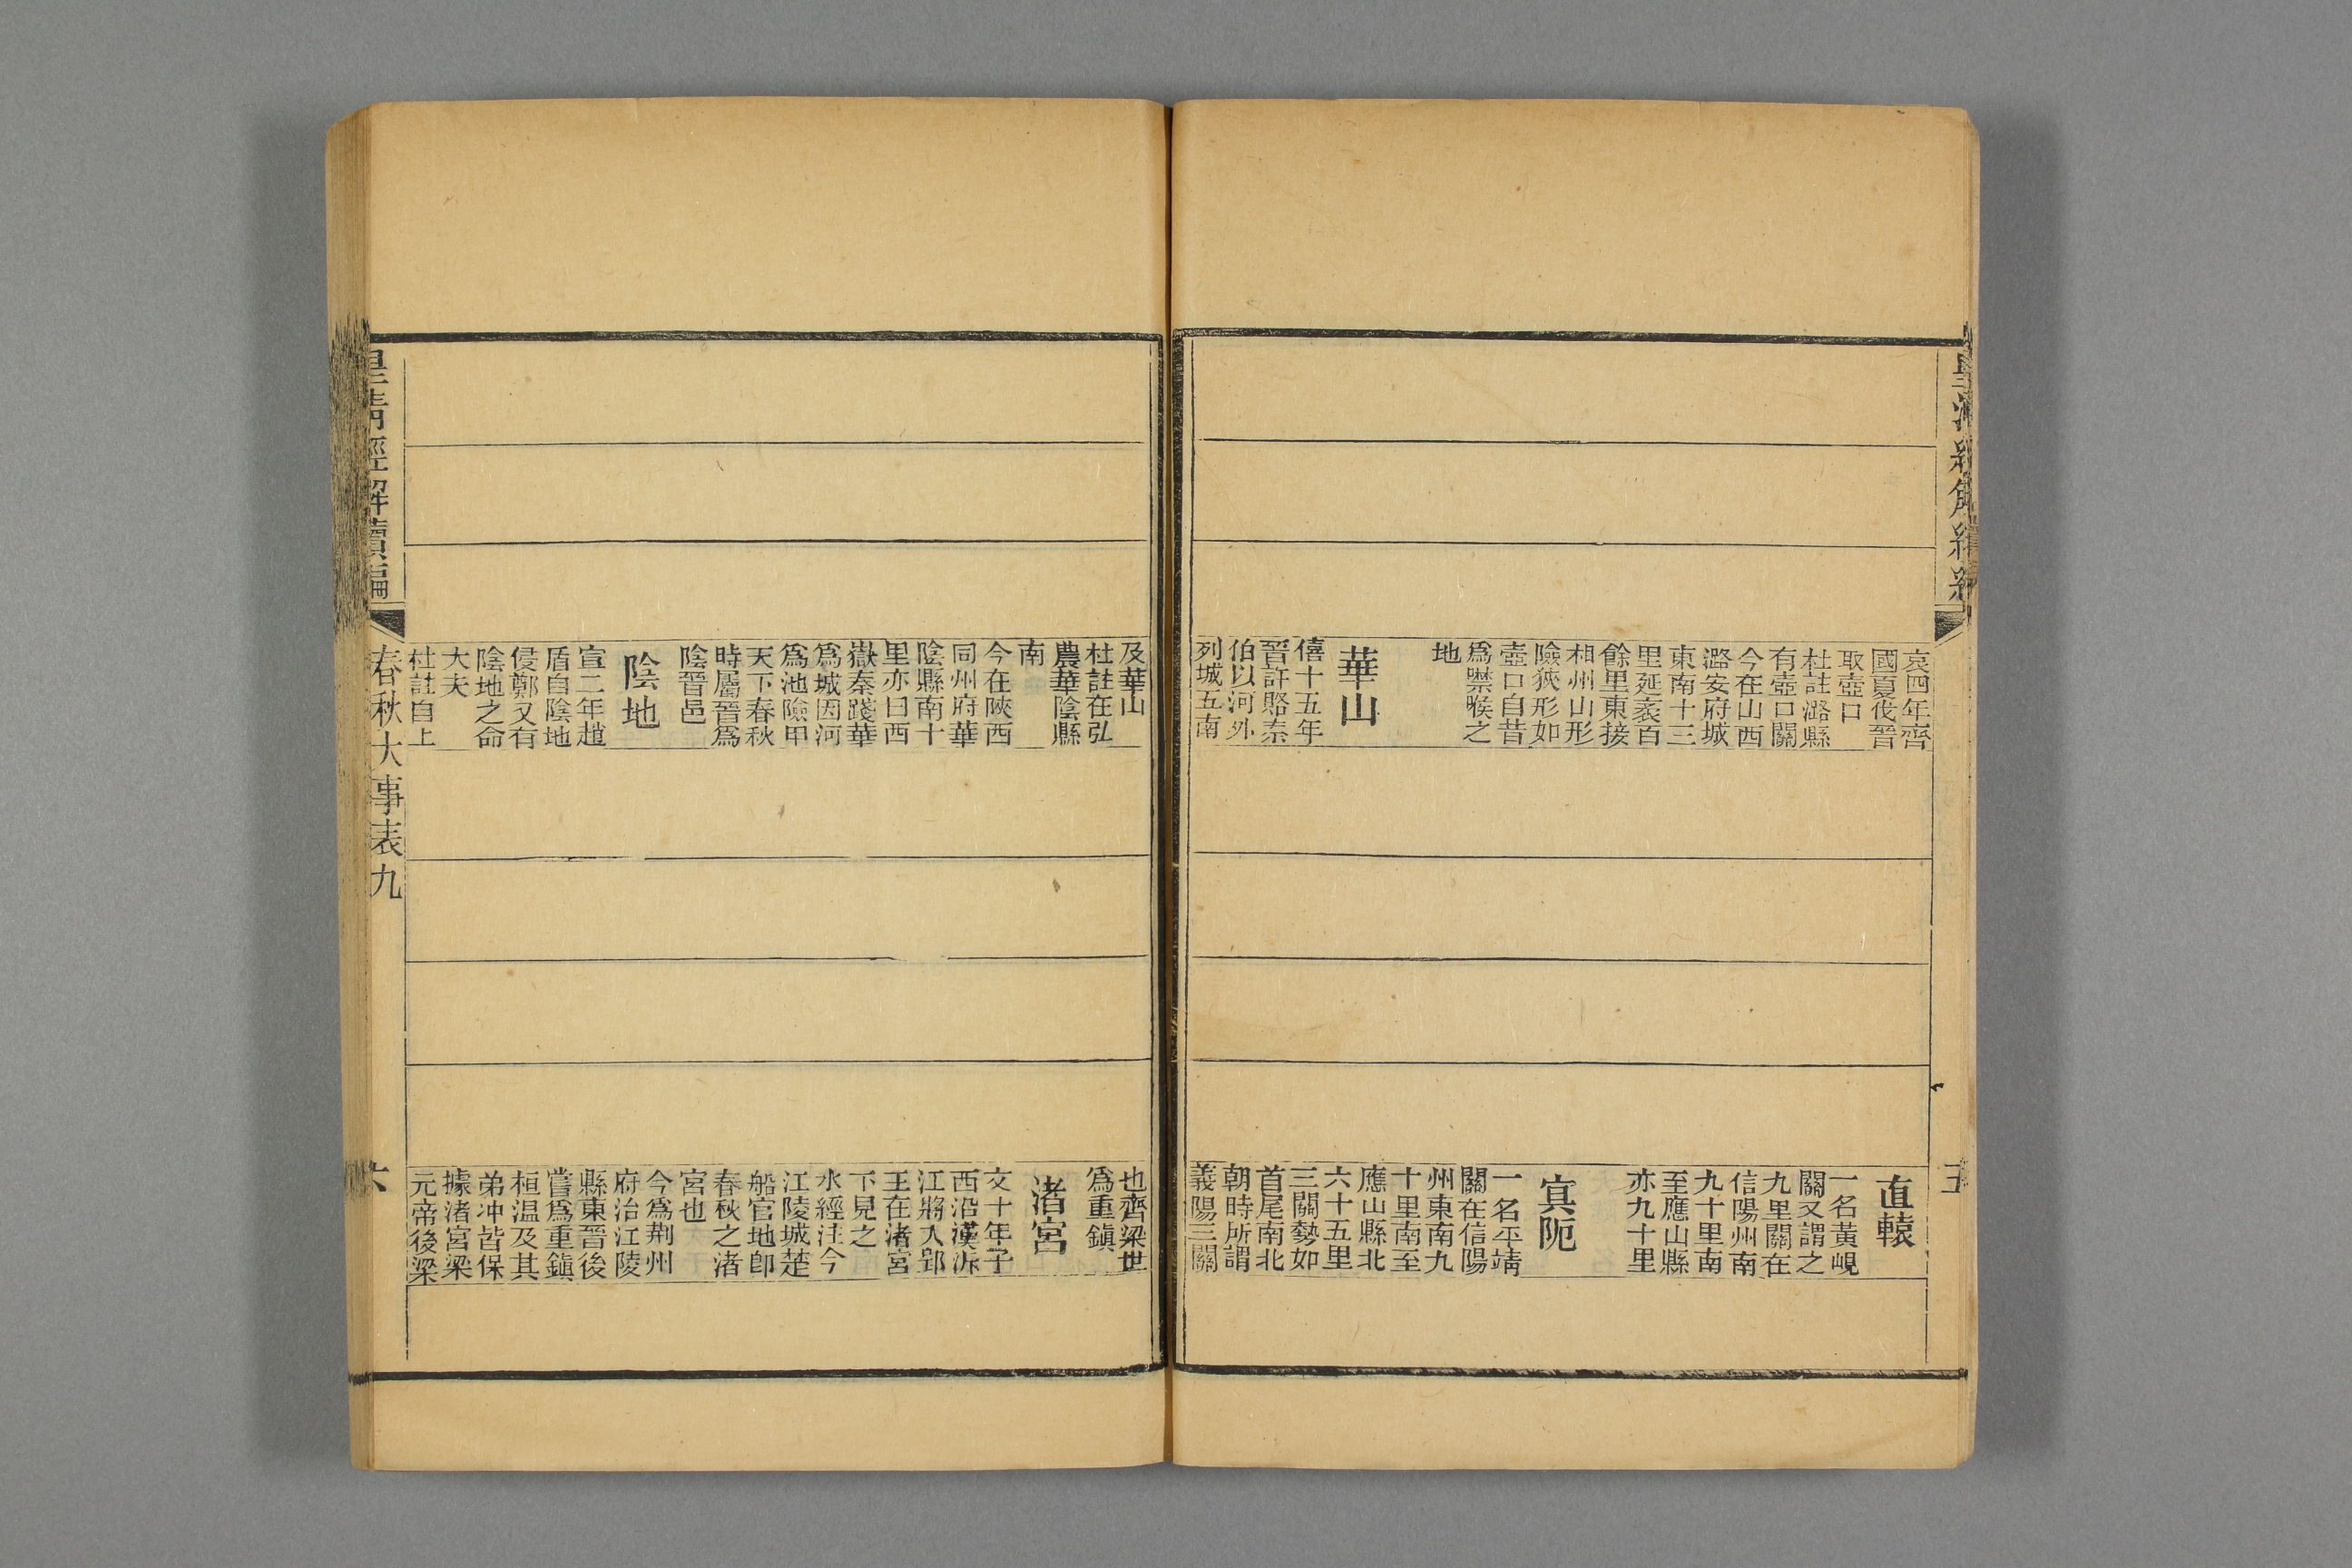 哀四年齊
國夏伐晉
取壺口
杜註潞縣
有壺口關
今在山西
潞安府城
東南十三
里延袤百
餘里東接
相州山形
險狹形如
壺口自昔
爲禦𠋫之
地
華山
僖十五年
晉許賂秦
伯以河外
列城五南
直轅
一名黃峴
關又謂之
九里關在
信陽州南
九十里南
至應山縣
亦九十里
㝠阨
一名平靖
關在信陽
州東南九
十里南至
應山縣北
六十五里
三關勢如
首尾南北
朝時所謂
義陽三關
及華山
杜註在弘
農華陰縣
南
今在陝西
同州府華
陰縣南十
里亦曰西
嶽秦踐華
爲城因河
爲池險甲
天下春秋
時屬晉爲
陰晉邑
陰地
宣二年趙
盾自陰地
侵鄭又有
陰地之命
大夫
杜註自上
也齊梁世
爲重鎮
渚宮
文十年子
西沿漢泝
江將入郢
王在渚宮
下見之
水經注今
江陵城楚
船官地卽
春秋之渚
宮也
今爲荆州
府治江陵
縣東晉後
嘗爲重鎮
桓温及其
弟冲皆保
據渚宮梁
元帝後梁
皇淸經解續編
春秋大事表九
六